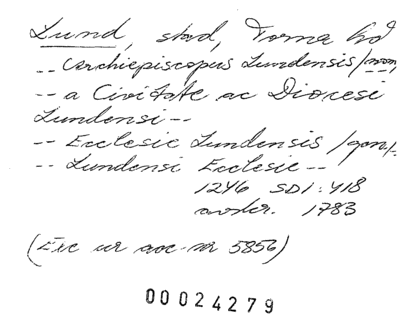 Lund, stad, Torna hd
-- Archiepiscopus Lundensis /nom/
-- a Civitate ac Diocesi
Lundensi --
-- Ecclesie Lundensis /gen/.
-- Lundensi Ecclesie --
1246 SD1:418
avskr. 1783
(Exc ur acc. nr 5856)
00024279